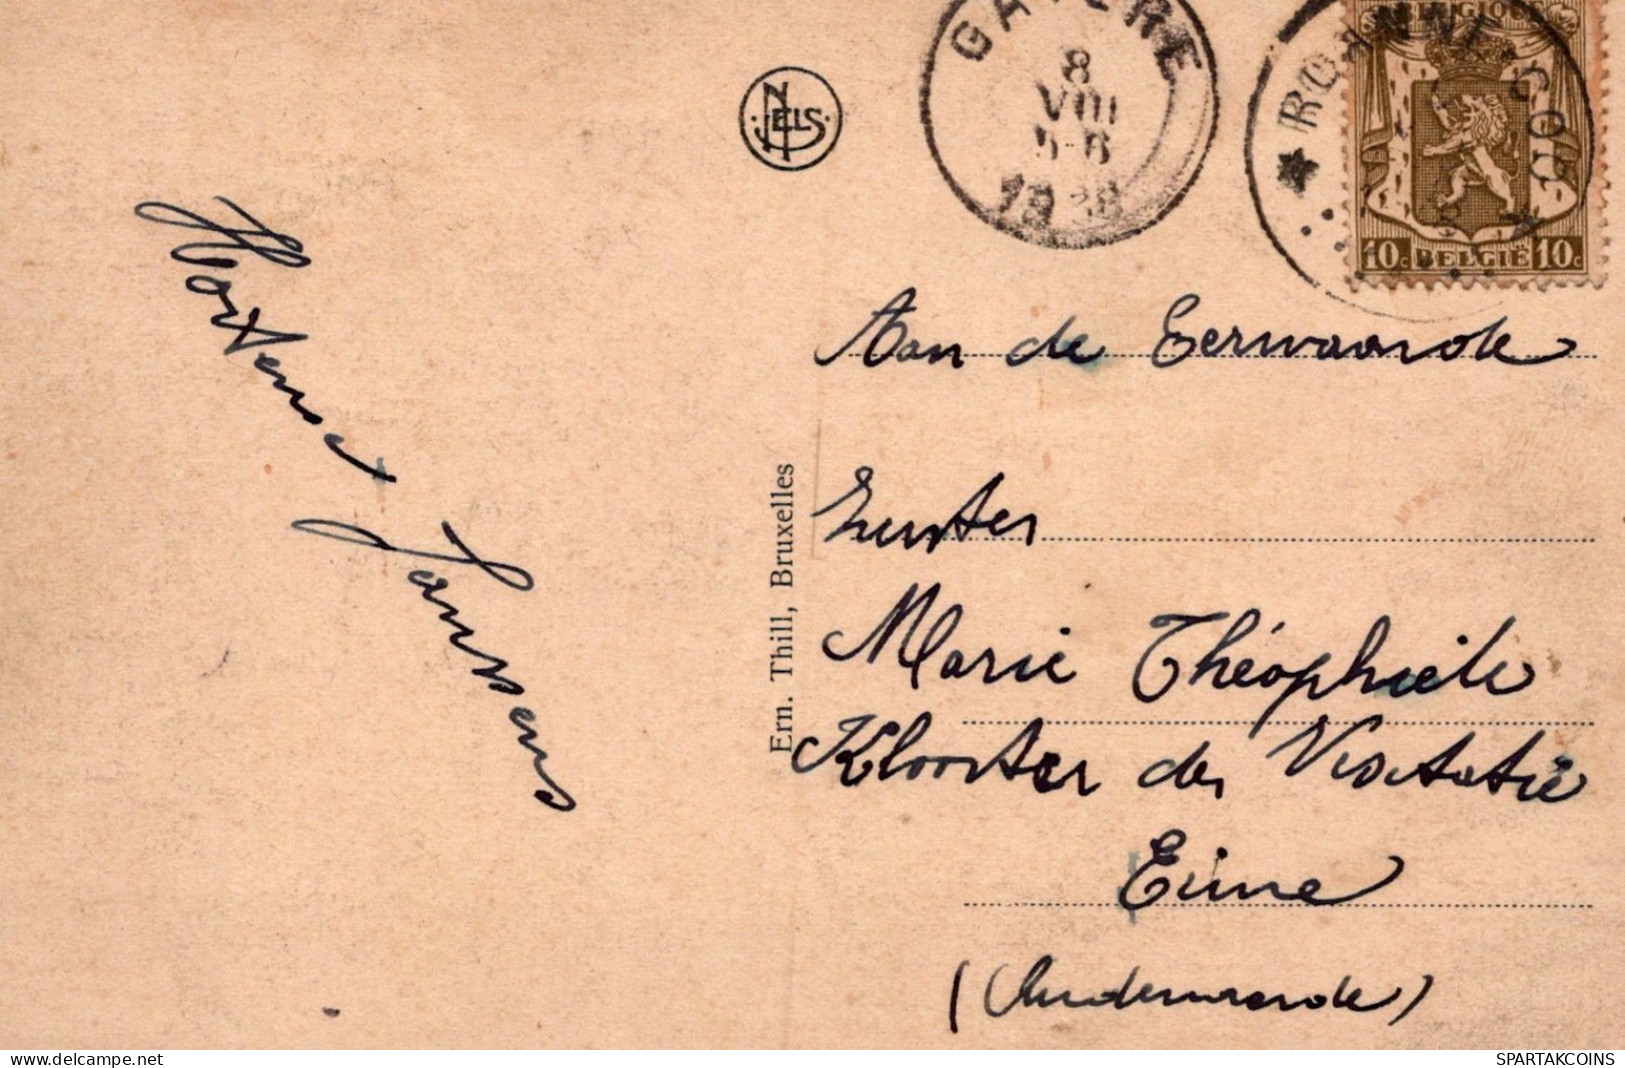 GAVERE
8
VIII
1938
BELGIQUE
10c BELGIË 10c
NELS
Hortense Janssens
Ern. Thill, Bruxelles
Aan de Eerwaarde
Zuster
Marie Théophiele
Klooster der Visitatie
Eine
(Audenaarde)
SPARTAKCOINS